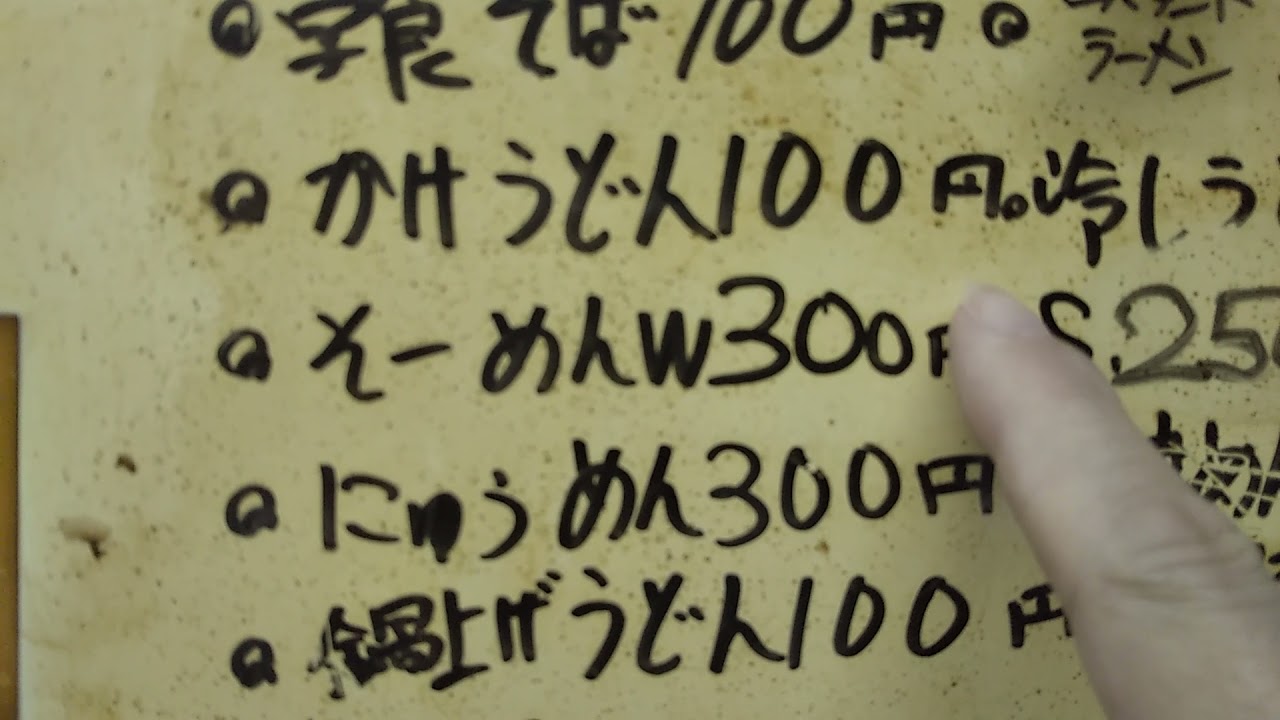 そば100円 ラーメン
かけうどん100円。冷しう
そーめんW300円 S.25
にゅうめん300円
鍋上げうどん100円